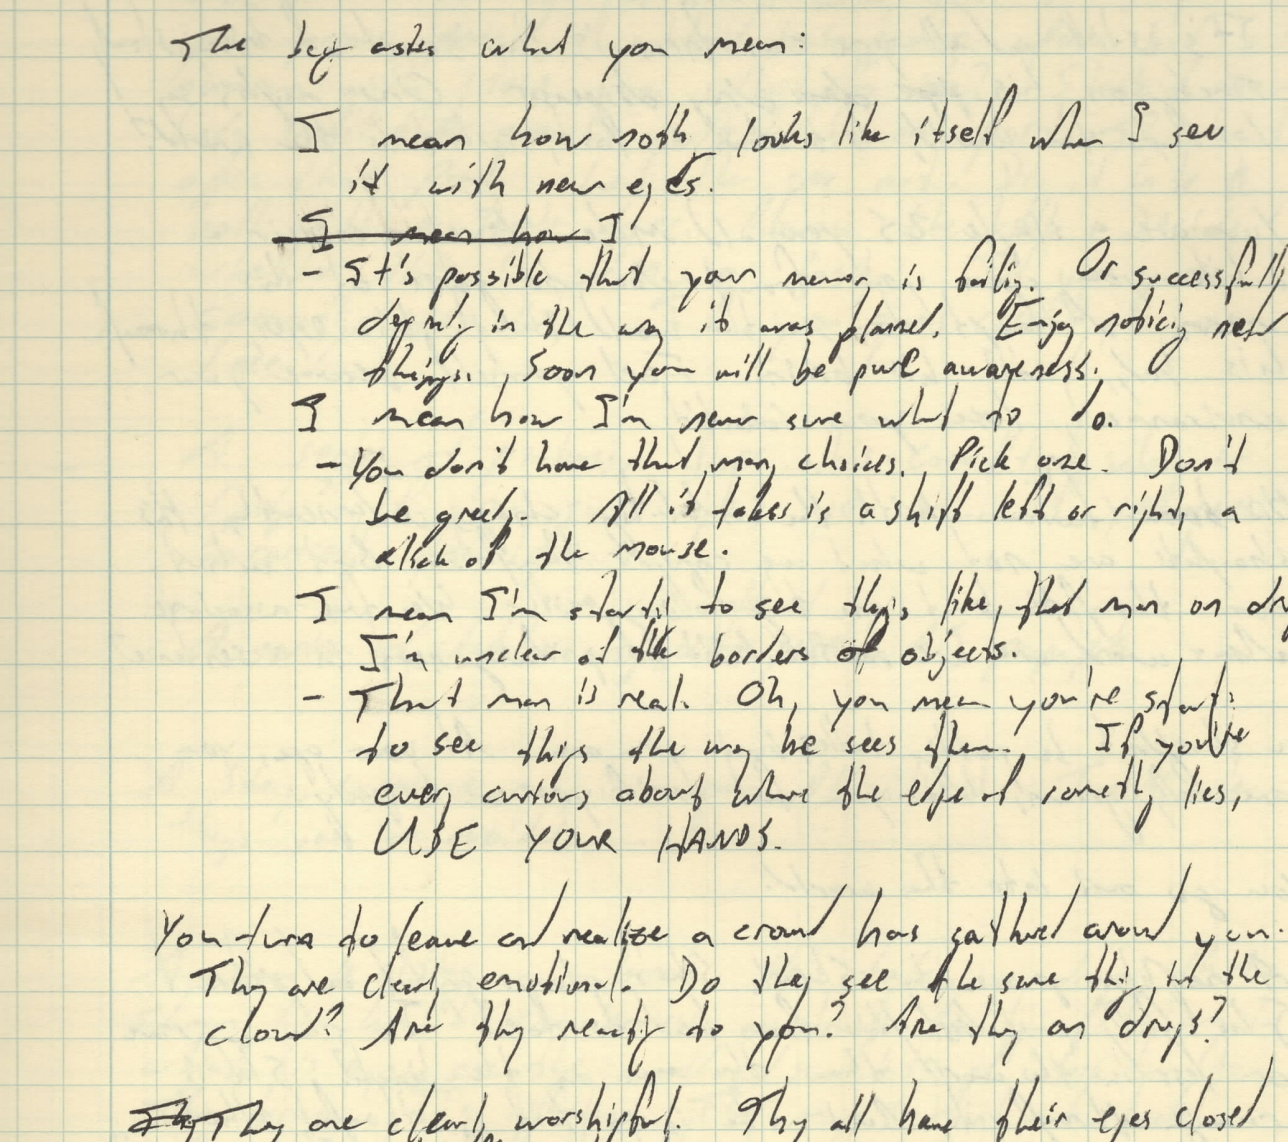 The boy asks what you mean:
I mean how noth. looks like itself when I see
it with new eyes.
I mean how I
- It's possible that your memory is failing. Or successfully
in the way it was planned. Enjoy noticing new
things. Soon you will be pure awareness.
I mean how I'm never sure what to do.
- You don't have that many choices. Pick one. Don't
be greedy. All it takes is a shift left or right, a
click of the mouse.
I mean I'm starting to see things like, that man on
I'm unclear of the borders of objects.
- That man is real. Oh, you mean you're starting
to see things the way he sees them. If you're
every curious about where the edge of something lies,
USE YOUR HANDS.
You turn to leave and realize a crowd has gathered around you.
They are clearly emotional. Do they see the same thing in the
cloud? Are they reacting to you? Are they on drugs?
They are clearly worshipful. They all have their eyes closed